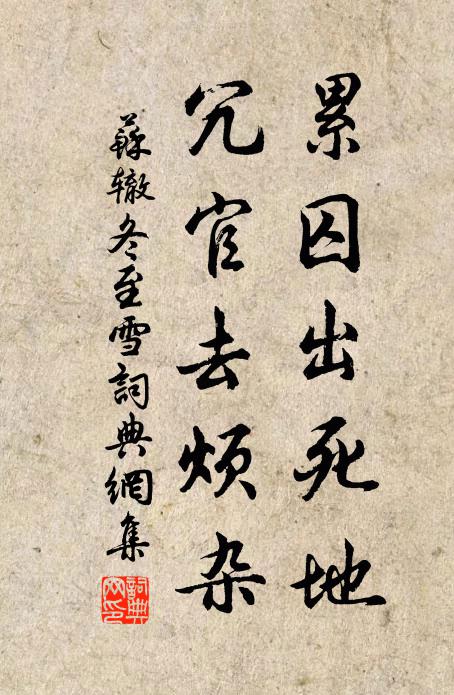 累囚出死地
冗官去烦杂
蘇辙冬至雪詞典網集
詞典网印